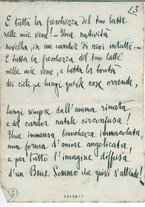 43
E tutta la freschezza del tuo latte
nelle mie vene! – Una natività
novella, in un candor di nevi intatte –
E tutta la freschezza del tuo latte
nelle mie vene, e tutta la bontà
dei cieli e lungi queste cose orrende,
lungi sempre dall'anima rinata
e dal candor natale circonfusa!
Una immensa bianchezza immacolata
una forma, d'amore angelicata
e per tutto l'imagine diffusa
d'un Bene Sommo che quivi s'attende!